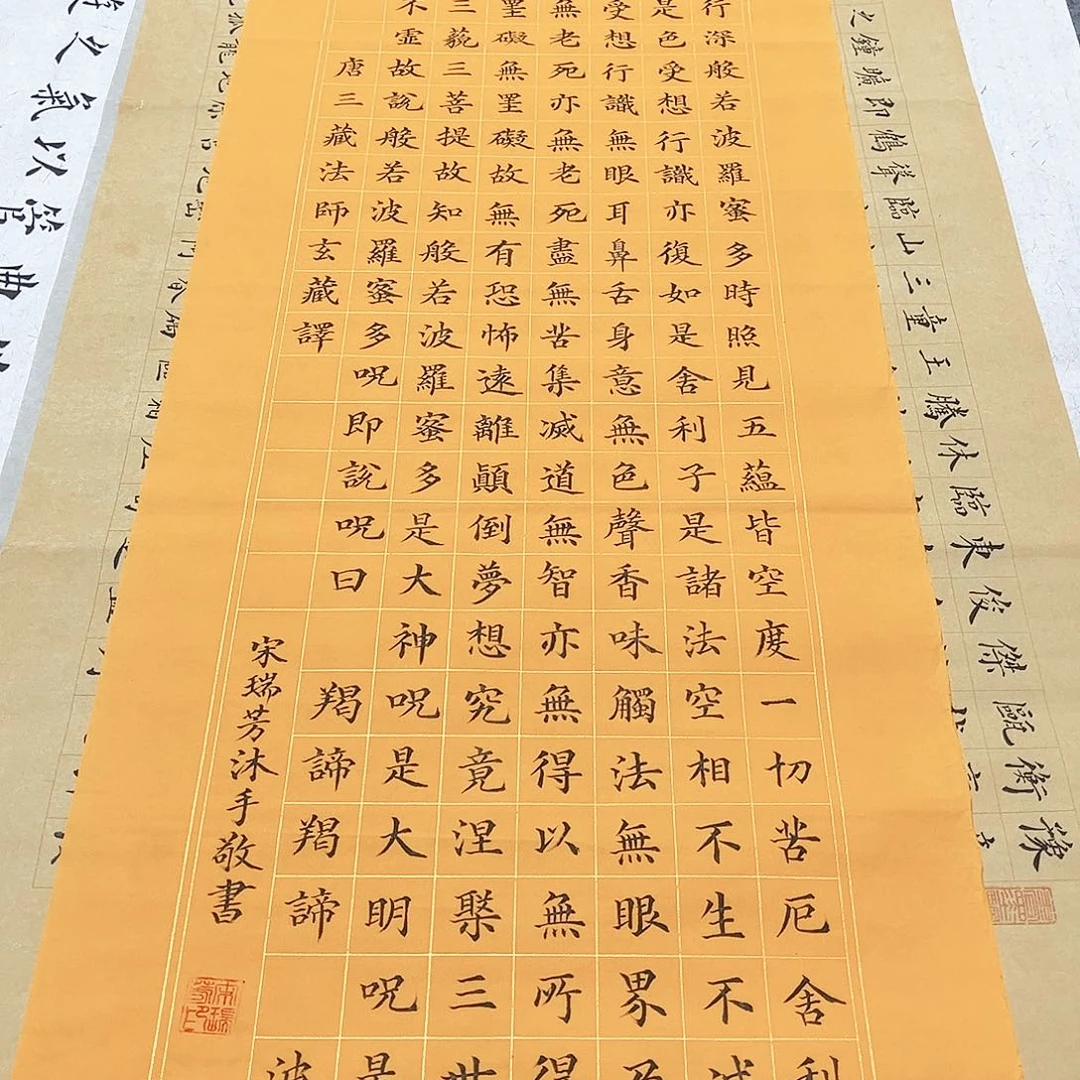 之鐘曠即鶴聲臨山三童王騰休臨東俊傑甌衡豫
行深般若波羅蜜多時照見五蘊皆空度一切苦厄舍利
是色受想行識亦復如是舍利子是諸法空相不生不滅
受想行識無眼耳鼻舌身意無色聲香味觸法無眼界乃
無老死亦無老死盡無苦集滅道無智亦無得以無所得
罣礙無罣礙故無有恐怖遠離顛倒夢想究竟涅槃三世
三藐三菩提故知般若波羅蜜多是大神呪是大明呪是
不虛故說般若波羅蜜多呪即說呪曰 羯諦羯諦 波
唐三藏法師玄藏譯
宋瑞芳沐手敬書
宋瑞芳印
之氣以管曲